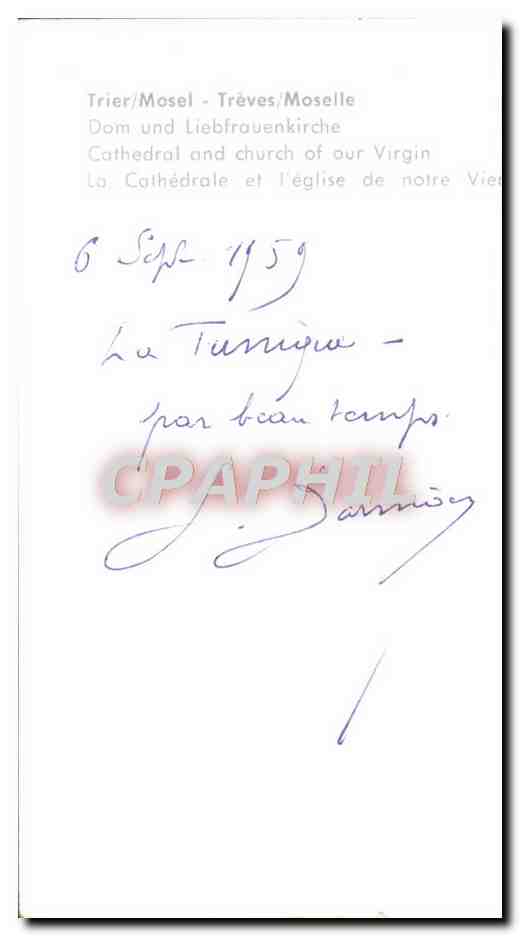 Trier/Mosel - Trèves/Moselle
Dom und Liebfrauenkirche
Cathedral and church of our Virgin
La Cathédrale et l'église de notre Vier
6 Sept. 1959
La Tunique -
par beau temps.
CPAPHIL
J.